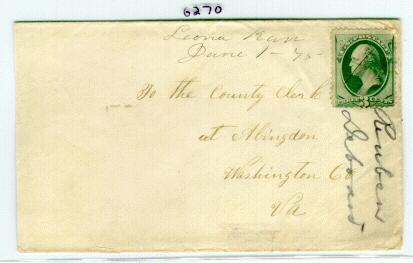 G270
Leona
June 1 - 75
To the County Clerk
at Abingdon
Washington Co
Va
Reuben
THREE 3 CENTS